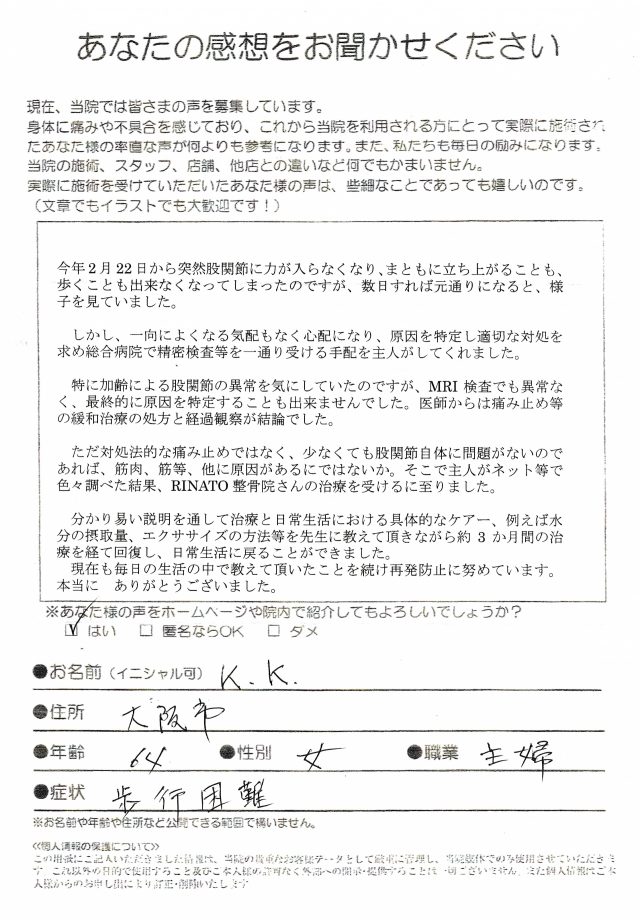 あなたの感想をお聞かせください
現在、当院では皆さまの声を募集しています。
身体に痛みや不具合を感じており、これから当院を利用される方にとって実際に施術され
たあなた様の率直な声が何よりも参考になります。また、私たちも毎日の励みになります。
当院の施術、スタッフ、店舗、他店との違いなど何でもかまいません。
実際に施術を受けていただいたあなた様の声は、些細なことであっても嬉しいのです。
（文章でもイラストでも大歓迎です！）
今年２月 22 日から突然股関節に力が入らなくなり、まともに立ち上がることも、
歩くことも出来なくなってしまったのですが、数日すれば元通りになると、様
子を見ていました。
しかし、一向によくなる気配もなく心配になり、原因を特定し適切な対処を
求め総合病院で精密検査等を一通り受ける手配を主人がしてくれました。
特に加齢による股関節の異常を気にしていたのですが、MRI 検査でも異常な
く、最終的に原因を特定することも出来ませんでした。医師からは痛み止め等
の緩和治療の処方と経過観察が結論でした。
ただ対処法的な痛み止めではなく、少なくても股関節自体に問題がないので
あれば、筋肉、筋等、他に原因があるにではないか。そこで主人がネット等で
色々調べた結果、RINATO 整骨院さんの治療を受けるに至りました。
分かり易い説明を通して治療と日常生活における具体的なケアー、例えば水
分の摂取量、エクササイズの方法等を先生に教えて頂きながら約 3 か月間の治
療を経て回復し、日常生活に戻ることができました。
現在も毎日の生活の中で教えて頂いたことを続け再発防止に努めています。
本当に　ありがとうございました。
※あなた様の声をホームページや院内で紹介してもよろしいでしょうか？
☑ はい　☐ 匿名ならOK　☐ ダメ
●お名前（イニシャル可） K.K.
●住所 大阪市
●年齢 64 ●性別 女 ●職業 主婦
●症状 歩行困難
※お名前や年齢や住所など公開できる範囲で構いません。
≪個人情報の保護について≫
この用紙にご記入いただきました情報は、当院の貴重なお客様データとして厳重に管理し、当院媒体でのみ使用させていただきま
す。これ以外の目的で使用すること及びご本人様の許可なく外部への開示・提供することは一切ございません。また個人情報はご本
人様からのお申し出により訂正・削除いたします